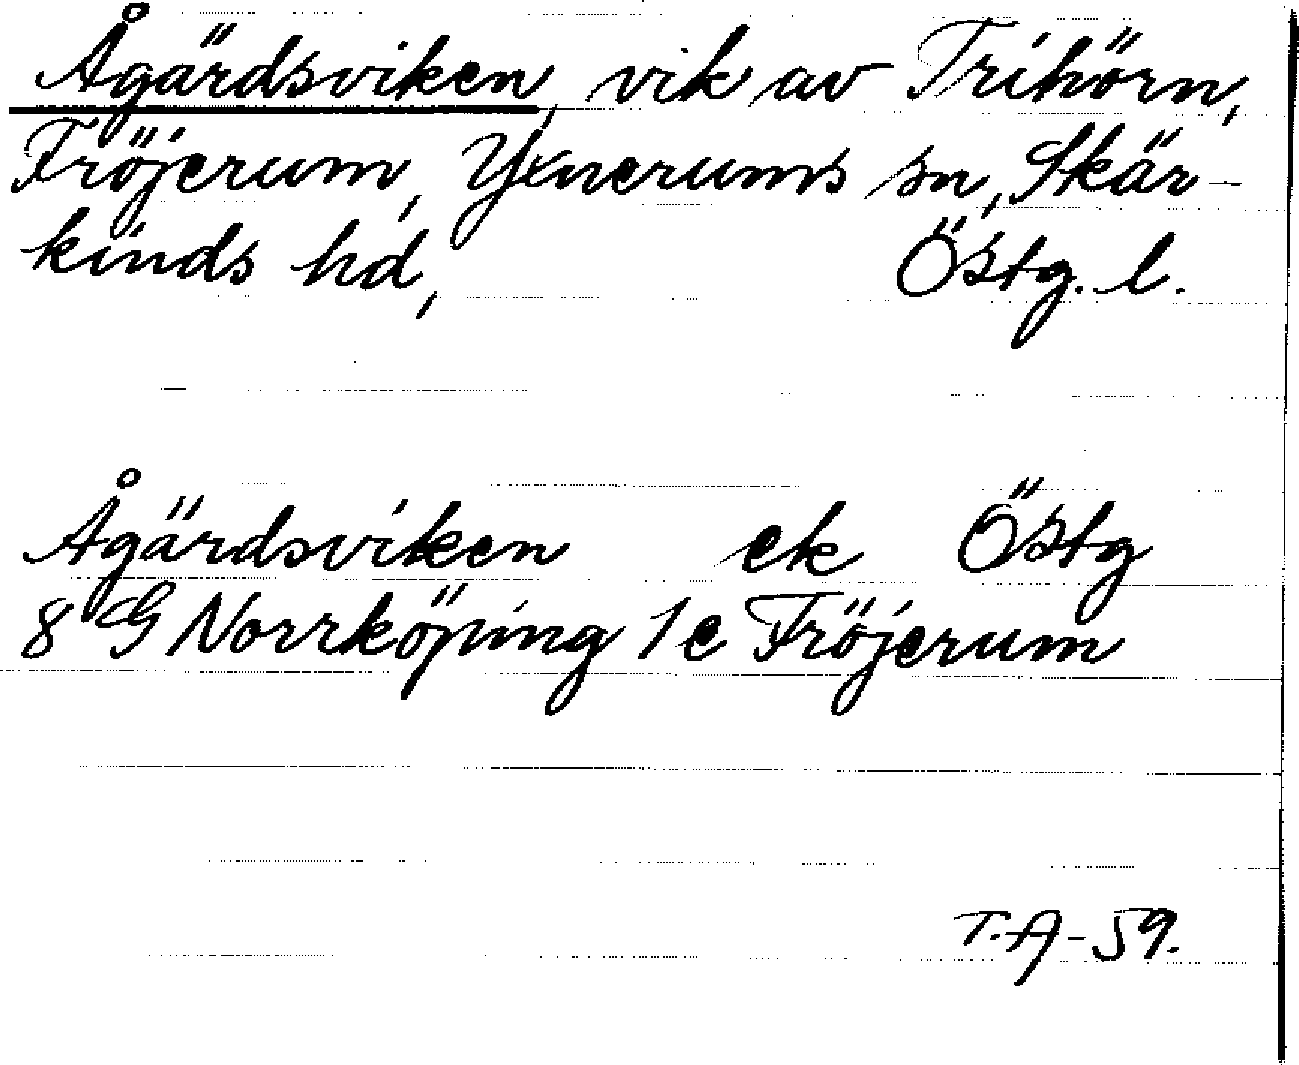 Ågärdsviken, vik av Trihörn,
Fröjerum, Yxnerums sn, Skär-
kinds hd, Östg. l.
Ågärdsviken ek Östg
8 G Norrköping 1 e Fröjerum
T.A-59.